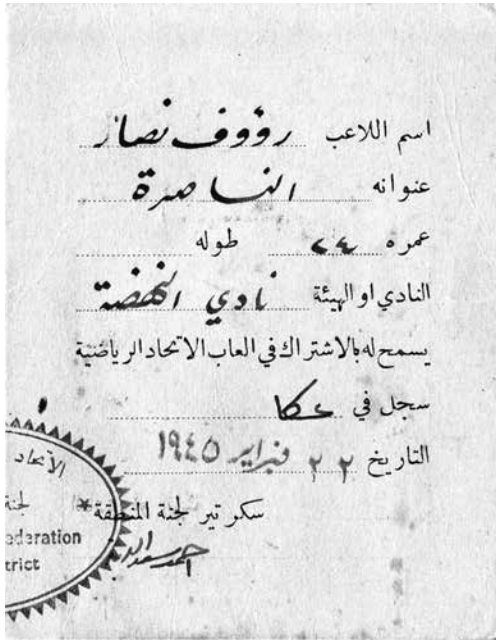 اسم اللاعب رؤوف نصار
عنوانه الناصرة
عمره ٢٤ طوله
النادي او الهيئة نادي النهضة
يسمح له بالاشتراك في العاب الاتحاد الرياضية
سجل في عكا
التاريخ ٢٢ فبراير ١٩٤٥
سكرتير لجنة المنطقة*
الاتحاد
لجنة
ederation
trict
احمد سعد الدين